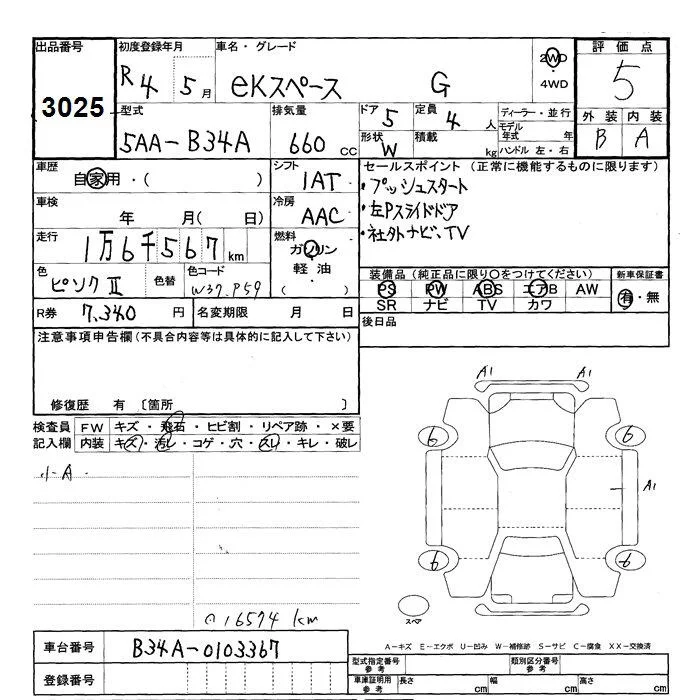 出品番号 初度登録年月 車名・グレード 評価点
3025 R4 5月 eKスペース G 2WD 5
・4WD
型式 排気量 ドア 5 定員 4人 ディーラー・並行 外装 内装
5AA-B34A 660cc モデル年式 年 B A
形状 W 積載 kg ハンドル 左・右
車歴 シフト セールスポイント (正常に機能するものに限ります)
自家用・( ) 1AT ・プッシュスタート
車検 冷房 ・左Pスライドドア
年 月( 日) AAC ・社外ナビ、TV
走行 燃料
1万6千567km ガソリン
軽油
( )
色 色替 色コード 装備品 (純正品に限り○をつけてください) 新車保証書
ピンクⅡ W37.P59 PS PW ABS エアB AW 有・無
SR ナビ TV カワ
R券 7.340円 名変期限 月 日 後日品
注意事項申告欄 (不具合内容等は具体的に記入して下さい)
修復歴 有 〔箇所 〕
A1 A1
検査員 FW キズ・飛石・ヒビ割・リペア跡・×要
記入欄 内装 キズ・汚レ・コゲ・穴・スレ・キレ・破レ
6 6
小A
A1
6 6
スペア
16574 km
A-キズ E-エクボ U-凹み W-補修跡 S-サビ C-腐食 XX-交換済
車台番号 B34A-0103367
型式指定番号 参考 類別区分番号 参考
登録番号 車庫証明用 参考 長さ cm 幅 cm 高さ cm